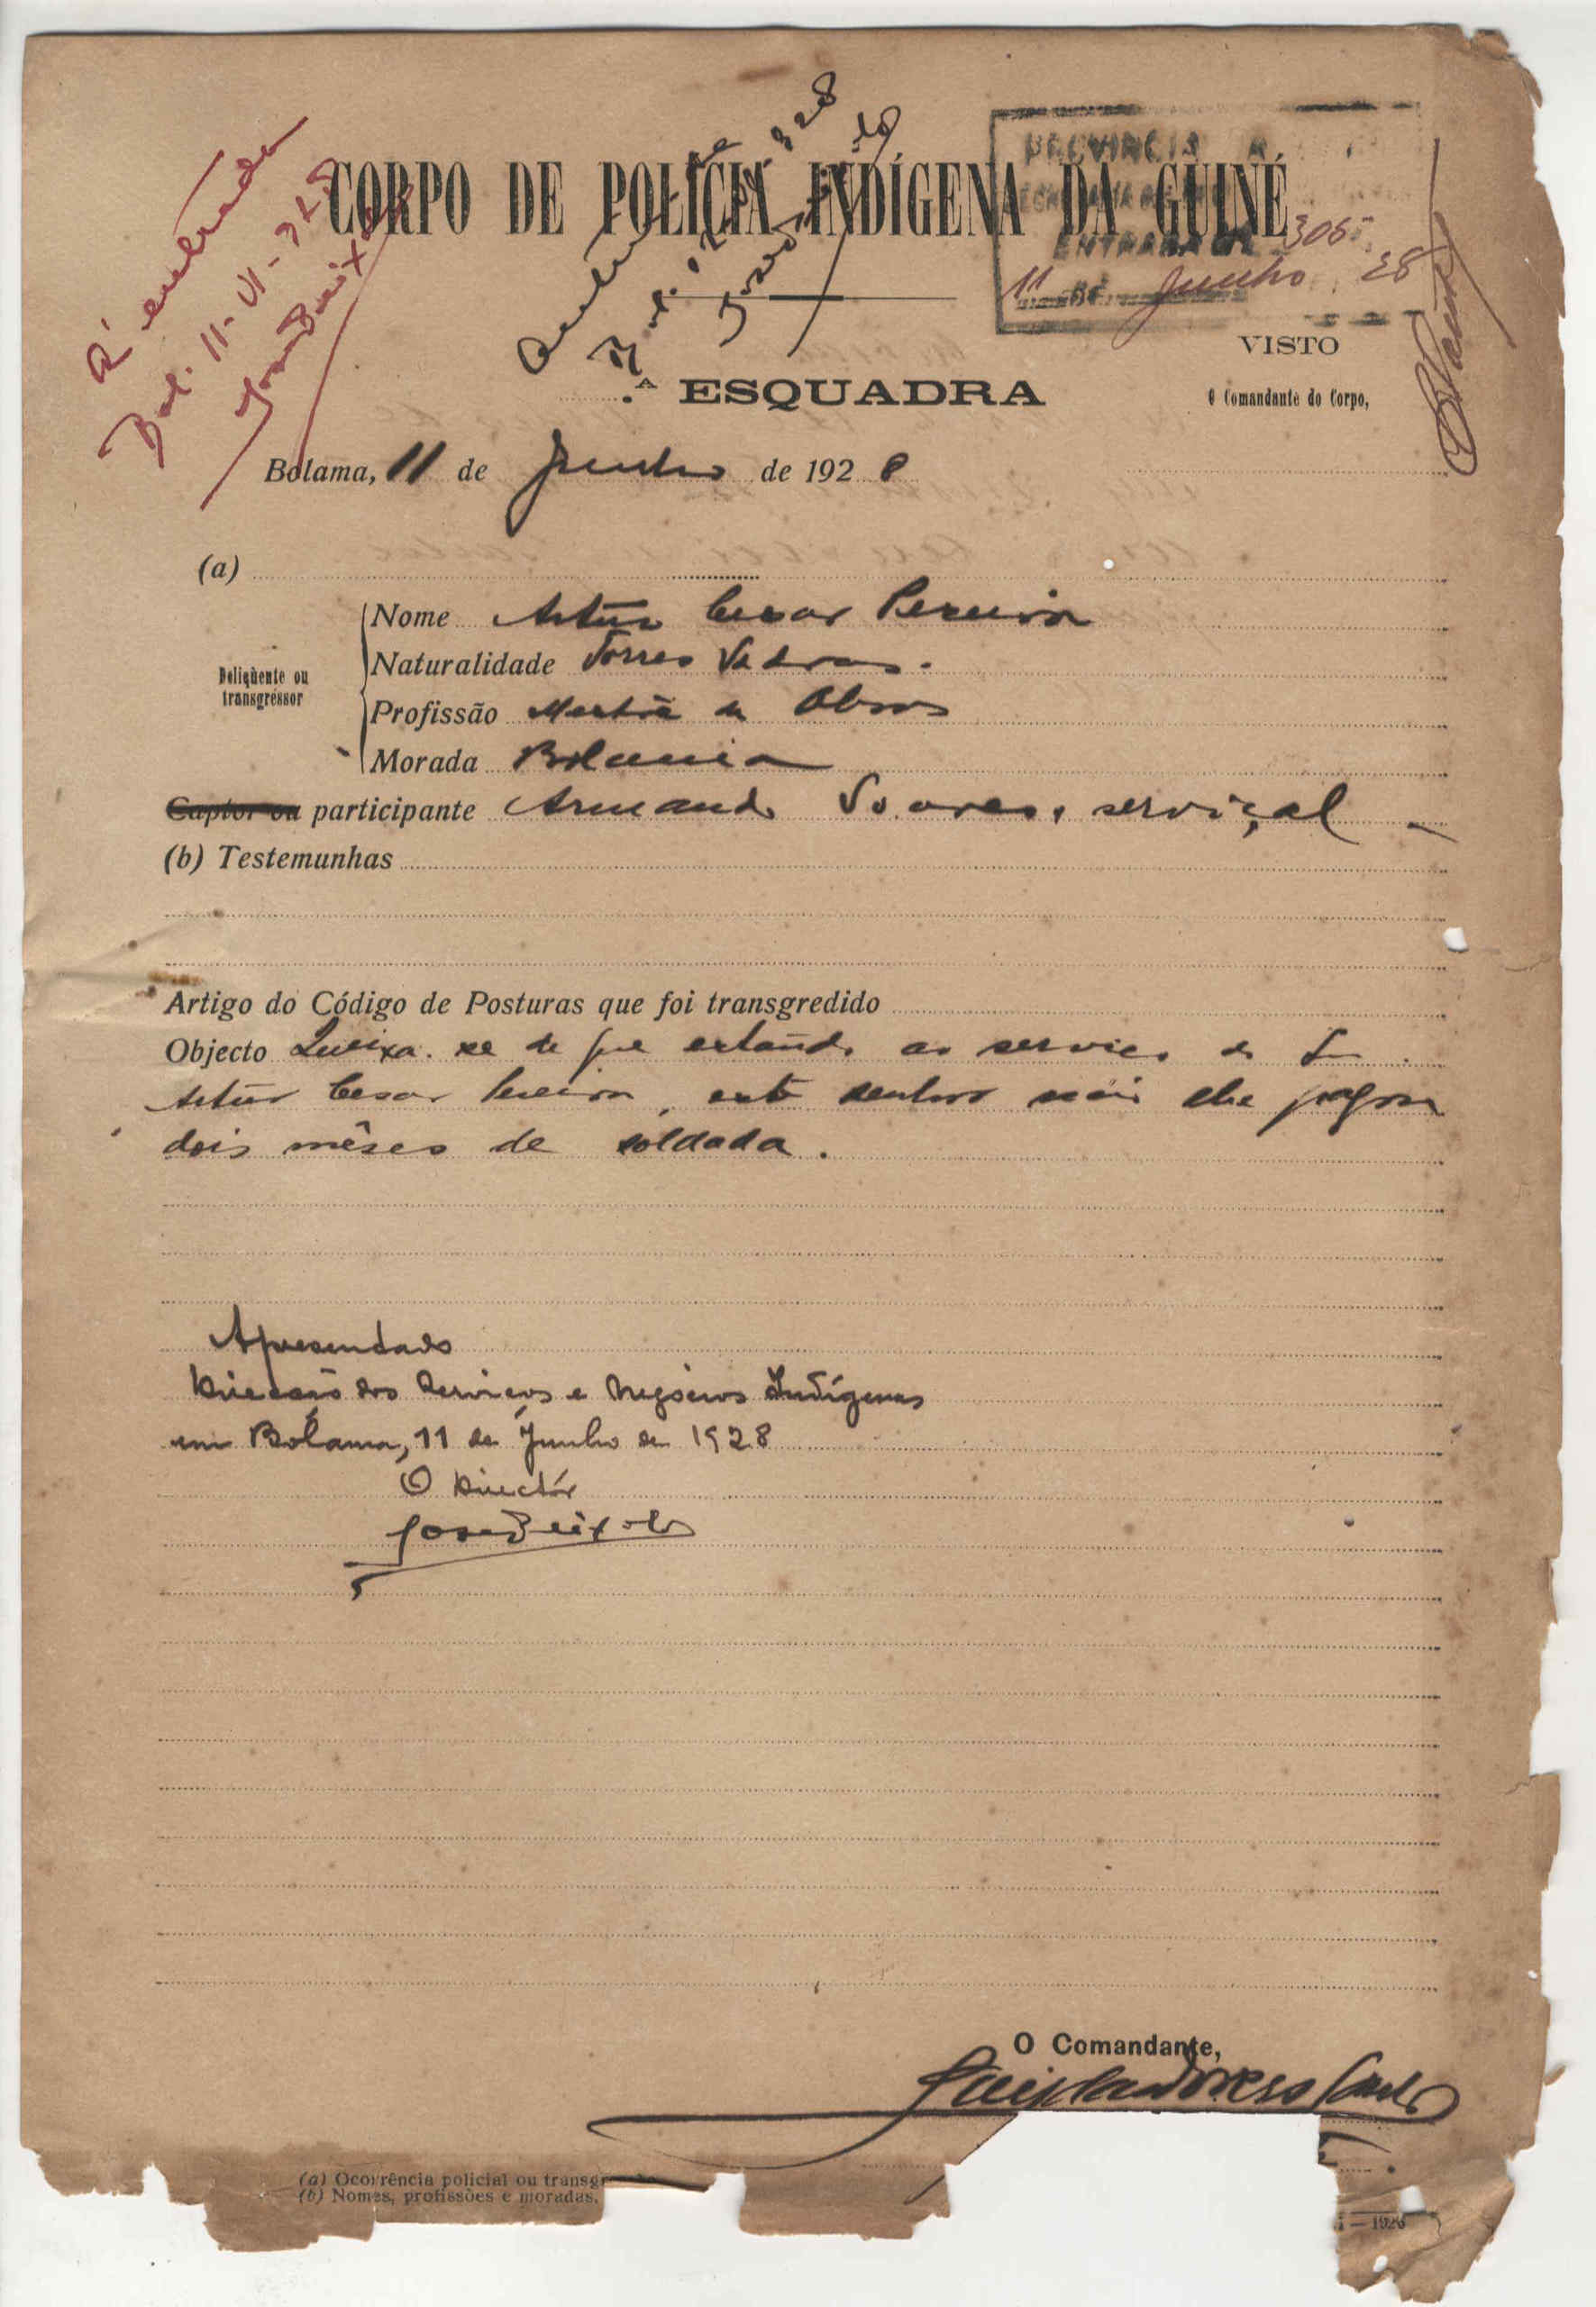 Á entrada
Bol. 11-VI-928
José Peixoto
CORPO DE POLÍCIA INDÍGENA DA GUINÉ
PROVINCIA
ENTRADA Nº 305
11 de Junho 28
VISTO
.ª ESQUADRA
O Comandante do Corpo,
Bolama, 11 de Junho de 1928
(a)
Deliqüente ou transgressor
Nome Artur Cesar Pereira
Naturalidade Torres Vedras.
Profissão Mestre de Obras
Morada Bolama
Captor ou participante Armando Soares, serviçal
(b) Testemunhas
Artigo do Código de Posturas que foi transgredido
Objecto Queixa-se de que estando ao serviço do Sr.
Artur Cesar Pereira, este senhor não lhe pagou
dois mêses de soldada.
Apresentado
Direcção dos Serviços e Negócios Indígenas
em Bolama, 11 de Junho de 1928
O Directór
José Peixoto
O Comandante,
(a) Ocorrência policial ou transgr
(b) Nomes, profissões e moradas.
— 1926